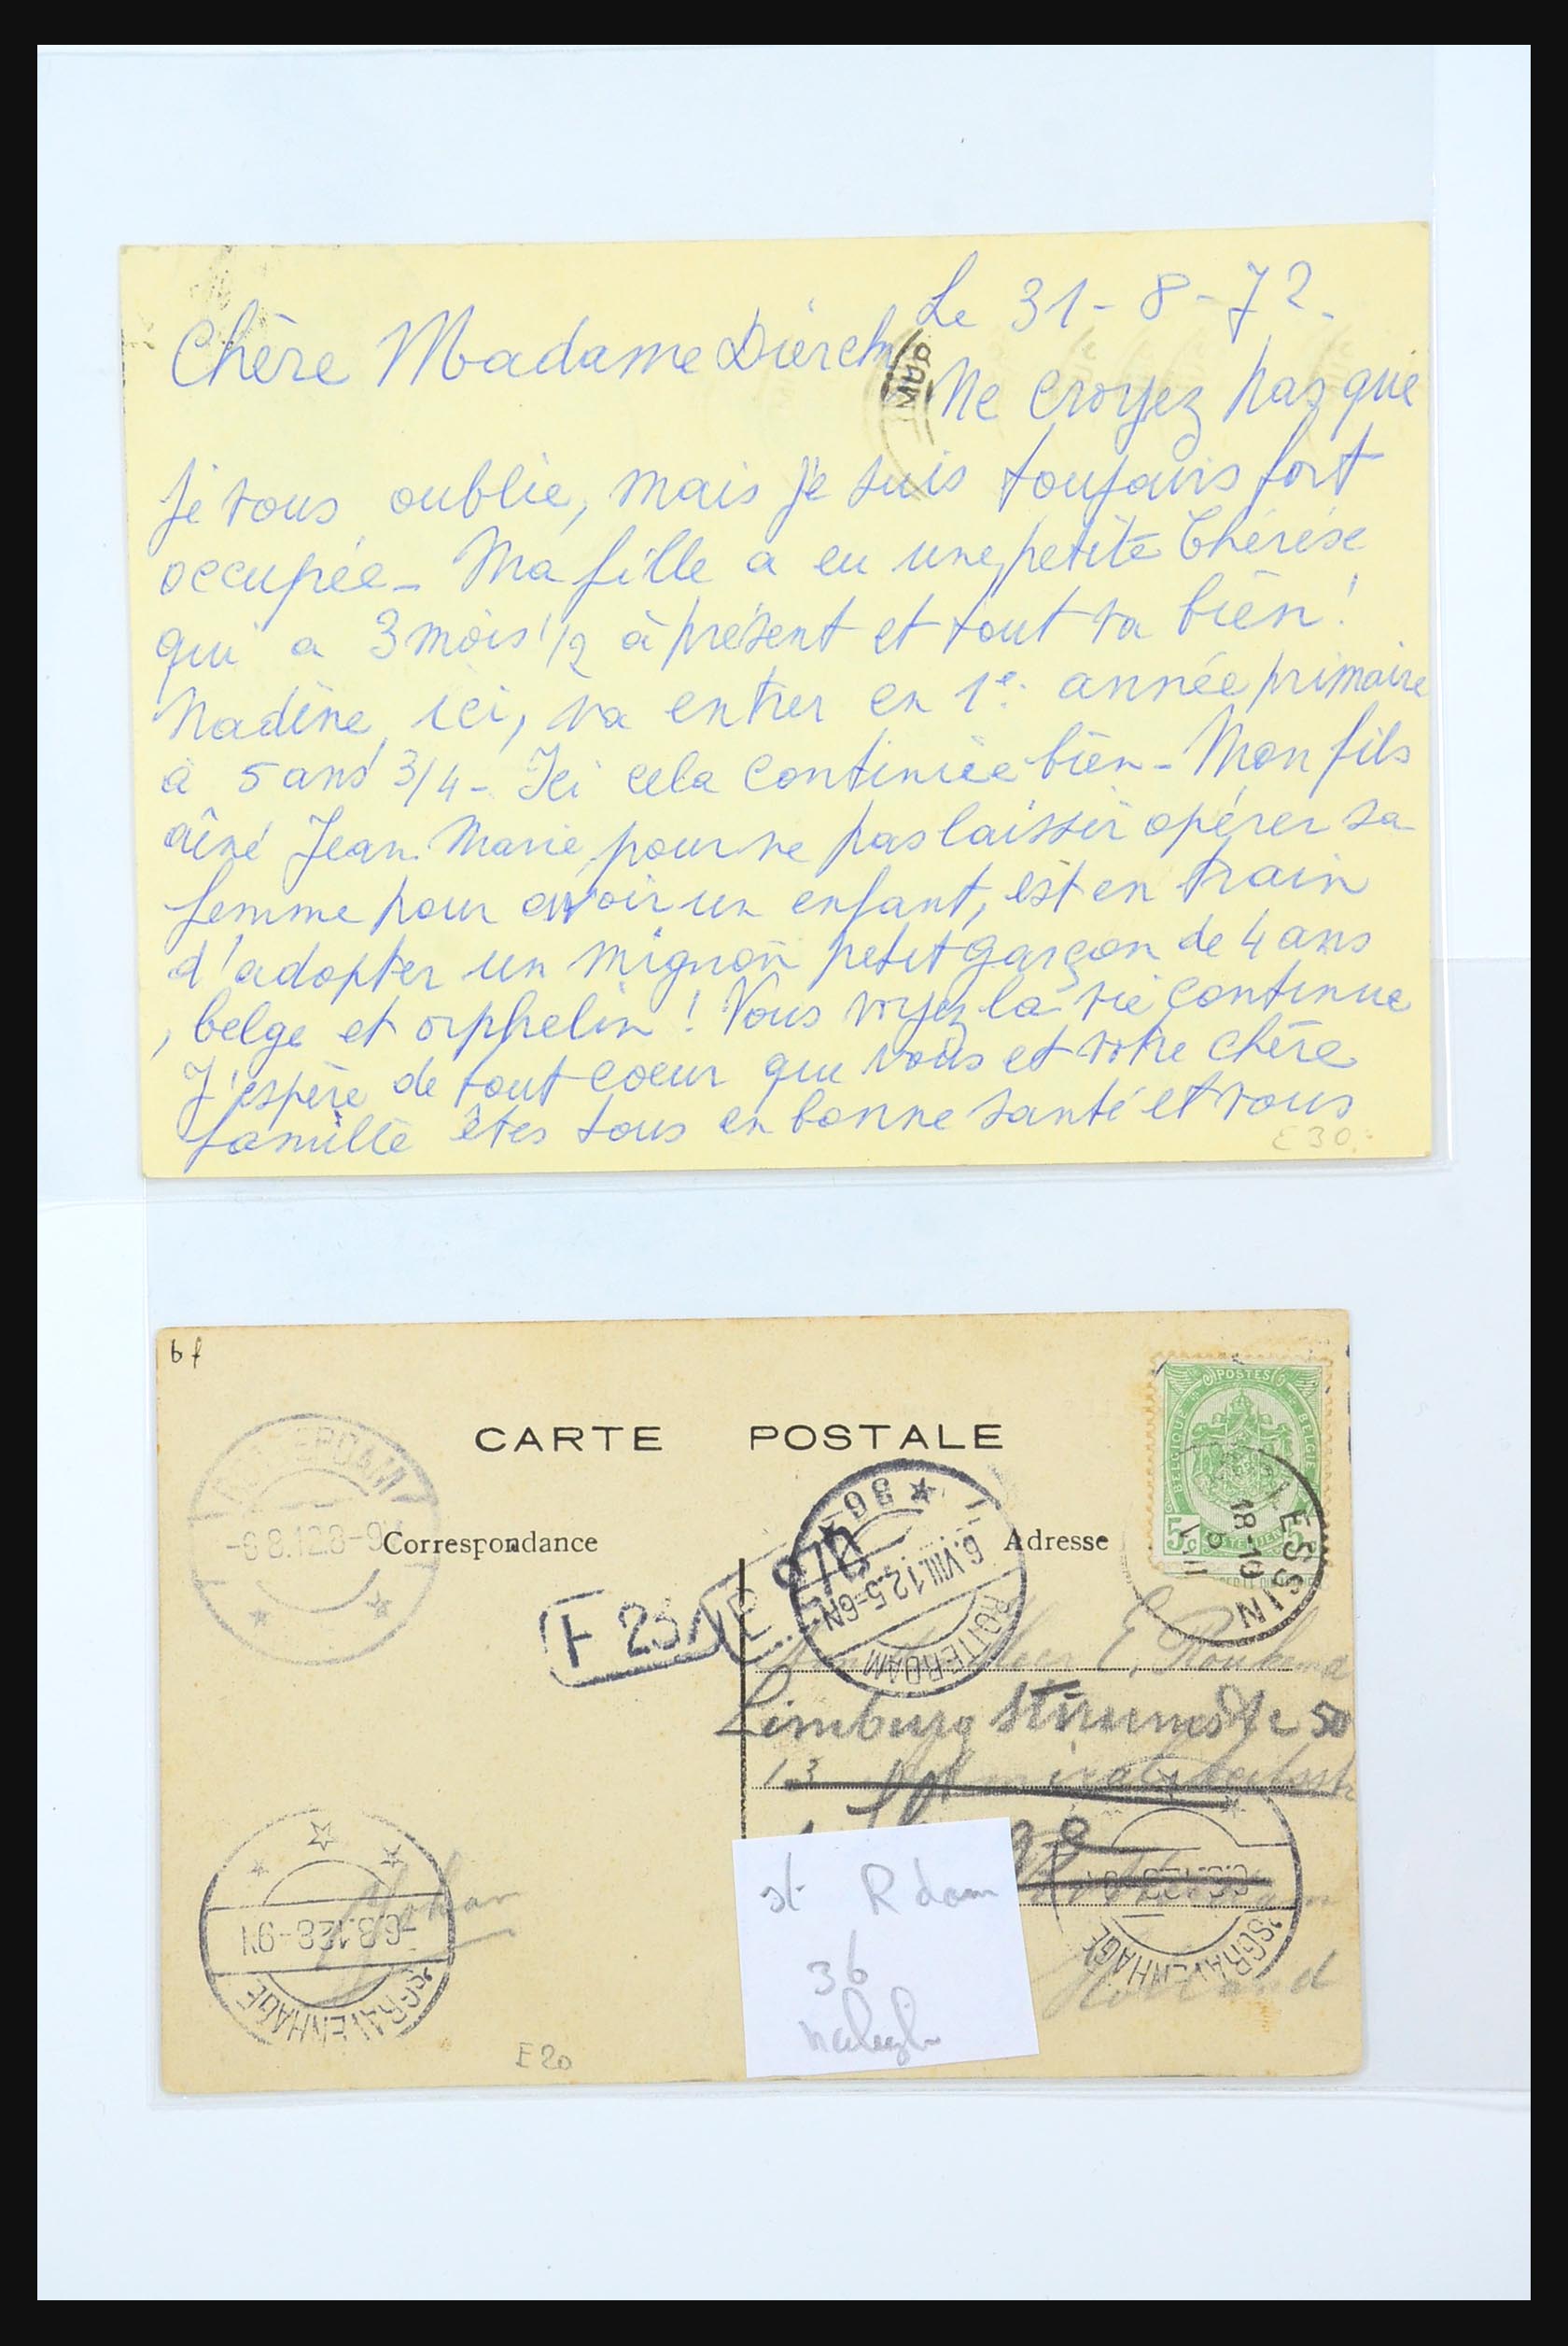 Le 31-8-72.
Chère Madame Dierckx
Ne croyez pas que
je vous oublie, mais je suis toujours fort
occupée - Ma fille a eu une petite Thérèse
qui a 3 mois 1/2 à présent et tout va bien !
Nadine, ici, va entrer en 1e. année primaire
à 5 ans 3/4 - Ici cela continue bien - Mon fils
aîné Jean-Marie pour ne pas laisser opérer sa
femme pour avoir un enfant, est en train
d'adopter un mignon petit garçon de 4 ans
, belge et orphelin ! Vous voyez la vie continue
J'espère de tout coeur que vous et votre chère
famille êtes tous en bonne santé et vous
E 30.-
bf
CARTE POSTALE
Correspondance
Adresse
POSTES
BELGIQUE
BELGIE
5c
LESSIN
18-19
ROTTERDAM
-6 8.12 8-9V
ROTTERDAM
6.VIII.12.5-6N
36
F 25
970
E.
Limburg Stirumstr 50
13
Holland
Johan
'SGRAVENHAGE
-6.8.12 8-9V
'SGRAVENHAGE
E 20
st R dam
36